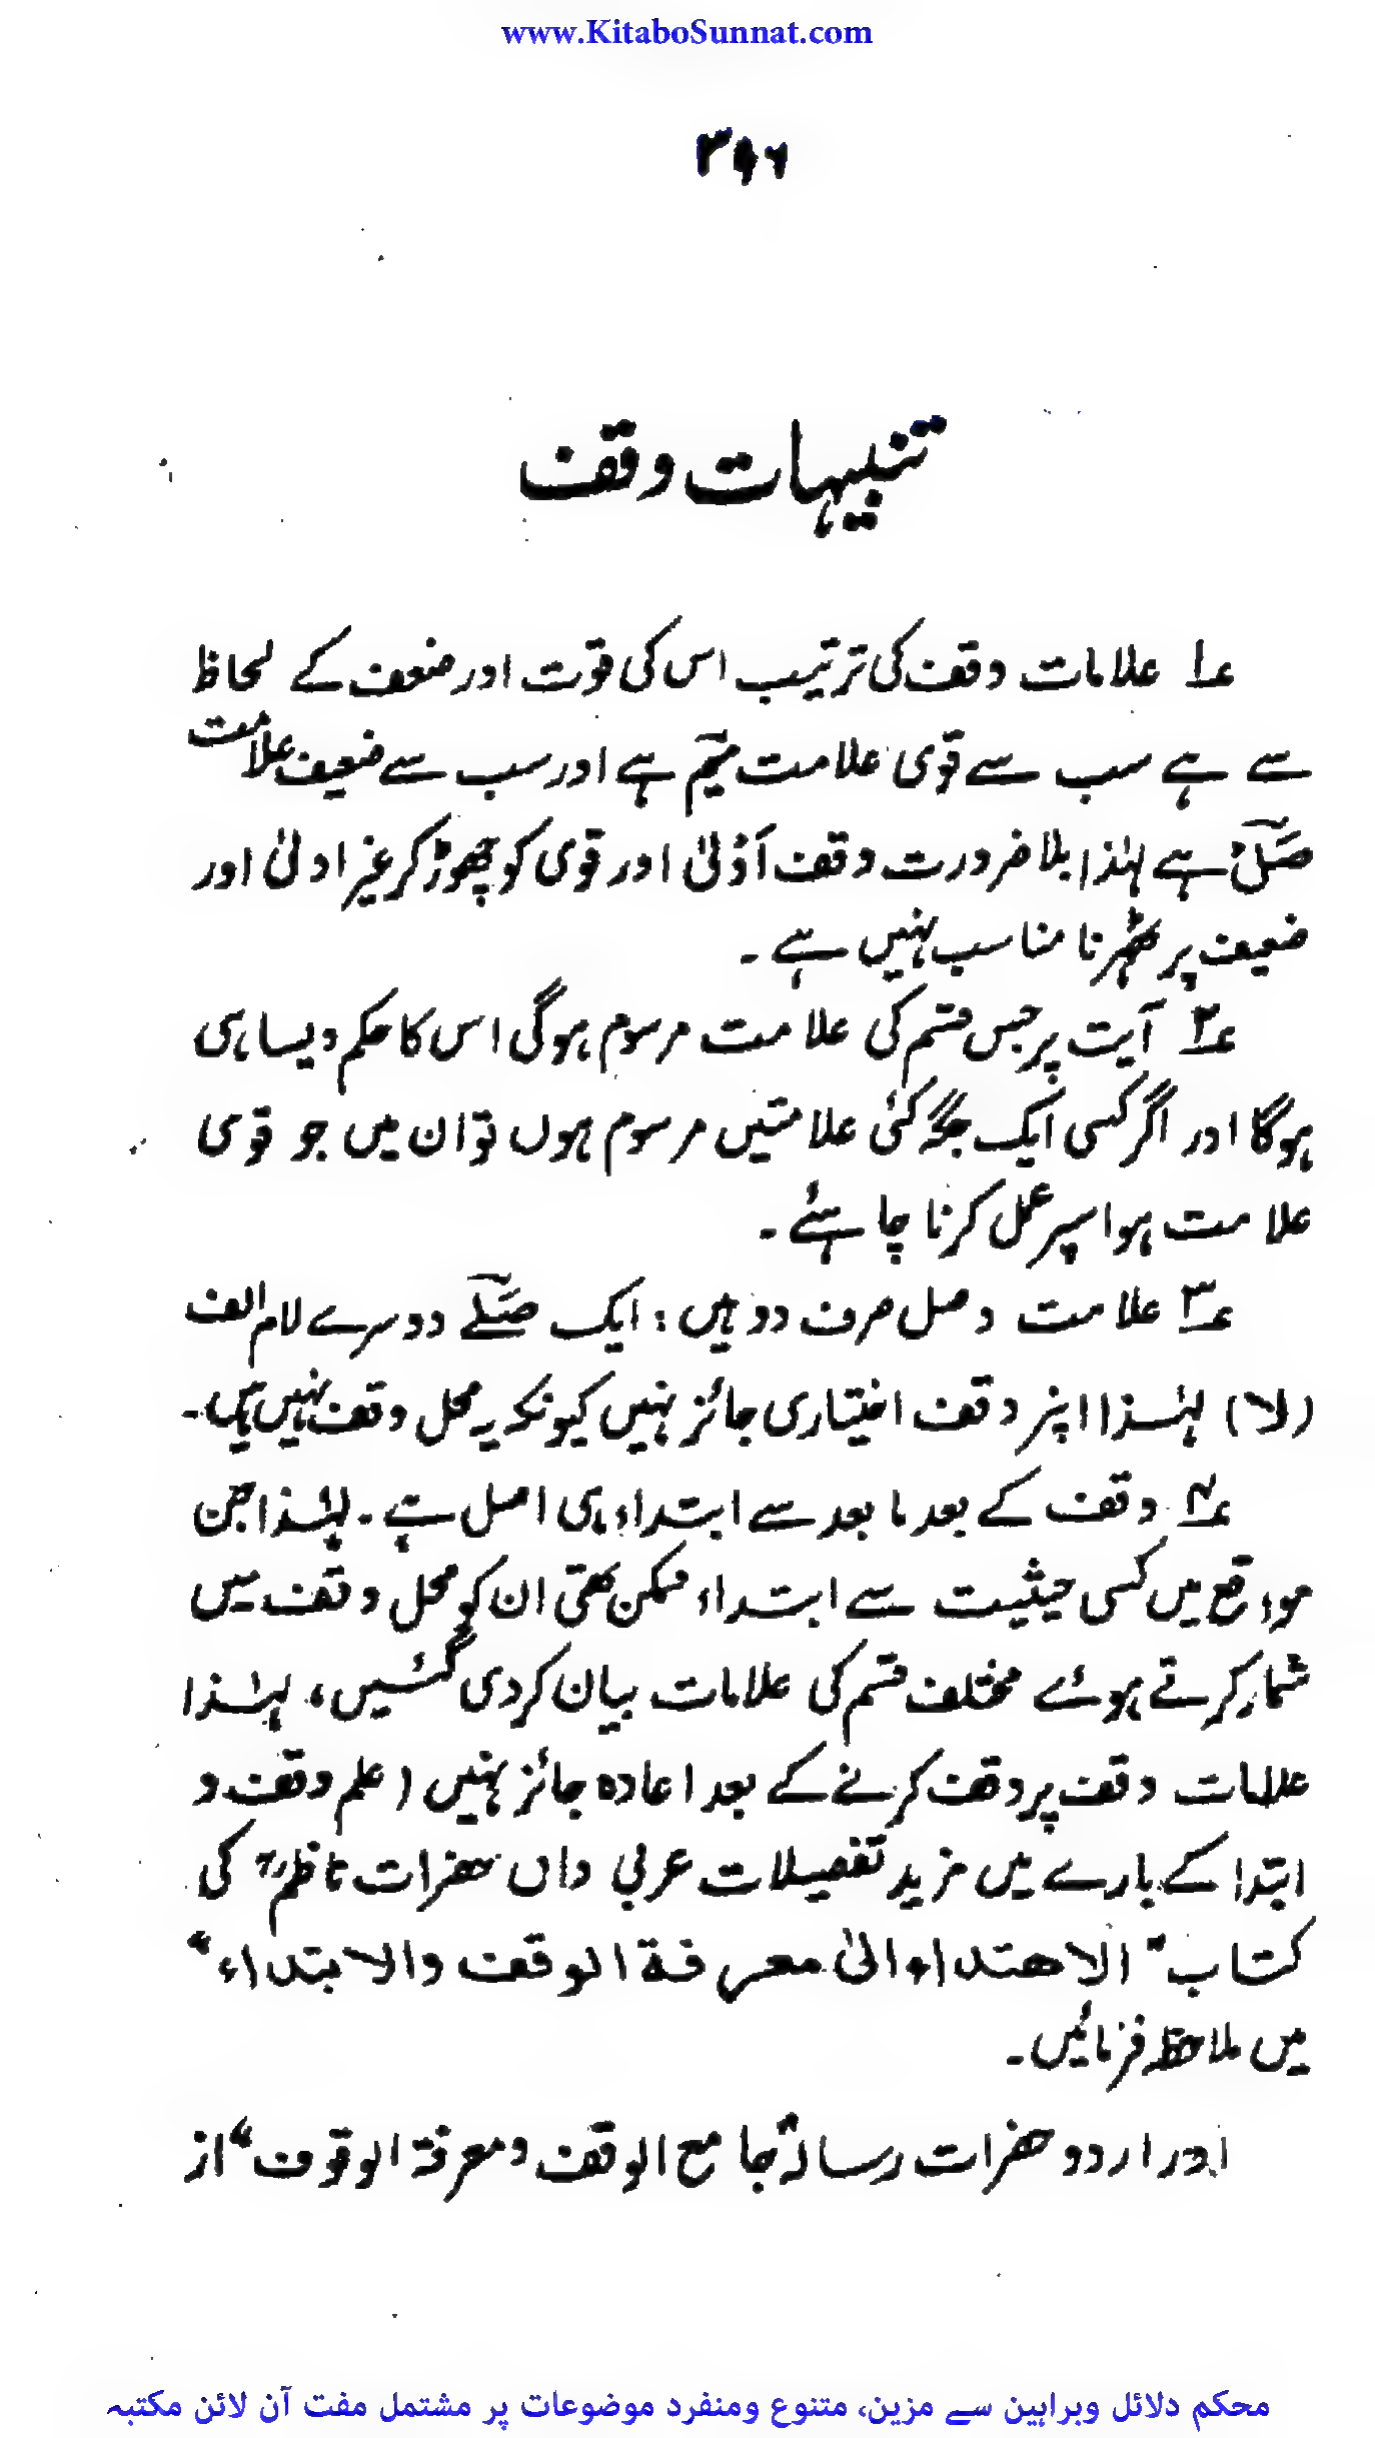 www.KitaboSunnat.com
۳۵۶
تنبیہات وقف
؏۱ علامات وقف کی ترتیب اس کی قوّت اور ضعف کے لحاظ
سے ہے سب سے قوی علامت میم ہے اور سب سے ضعیف علامت
صَلیٰ ہے لہٰذا بلا ضرورت وقف اَوْلیٰ اور قوی کو چھوڑ کر غیر اولیٰ اور
ضعیف پر ٹھہرنا مناسب نہیں ہے ۔
؏۲ آیت پر جس قسم کی علامت مرسوم ہوگی اس کا حکم ویسا ہی
ہوگا اور اگر کسی ایک جگہ کئی علامتیں مرسوم ہوں تو ان میں جو قوی
علامت ہو اسپر عمل کرنا چاہئے ۔
؏۳ علامت وصل صرف دو ہیں : ایک صَلے دوسرے لام الف
(لا) لہٰذا اپنر وقف اختیاری جائز نہیں کیونکہ یہ محل وقف نہیں ہیں ۔
؏۴ وقف کے بعد ما بعد سے ابتداء ہی اصل ہے ۔ لہٰذا جن
مواقع میں کسی حیثیت سے ابتداء ممکن تھی ان کو محل وقف میں
شمار کرتے ہوئے مختلف قسم کی علامات بیان کردی گئیں ، لہٰذا
علامات وقف پر وقف کرنے کے بعد اعادہ جائز نہیں (علم وقف و
ابتدا کے بارے میں مزید تفصیلات عربی داں حضرات ناظمؒ کی
کتاب "الاھتداء الیٰ معرفة الوقف والابتداء"
میں ملاحظہ فرمائیں ۔
اور اردو حضرات رسالہ "جامع الوقف ومعرفة الوقوف" از
محکم دلائل وبراہین سے مزین، متنوع ومنفرد موضوعات پر مشتمل مفت آن لائن مکتبہ